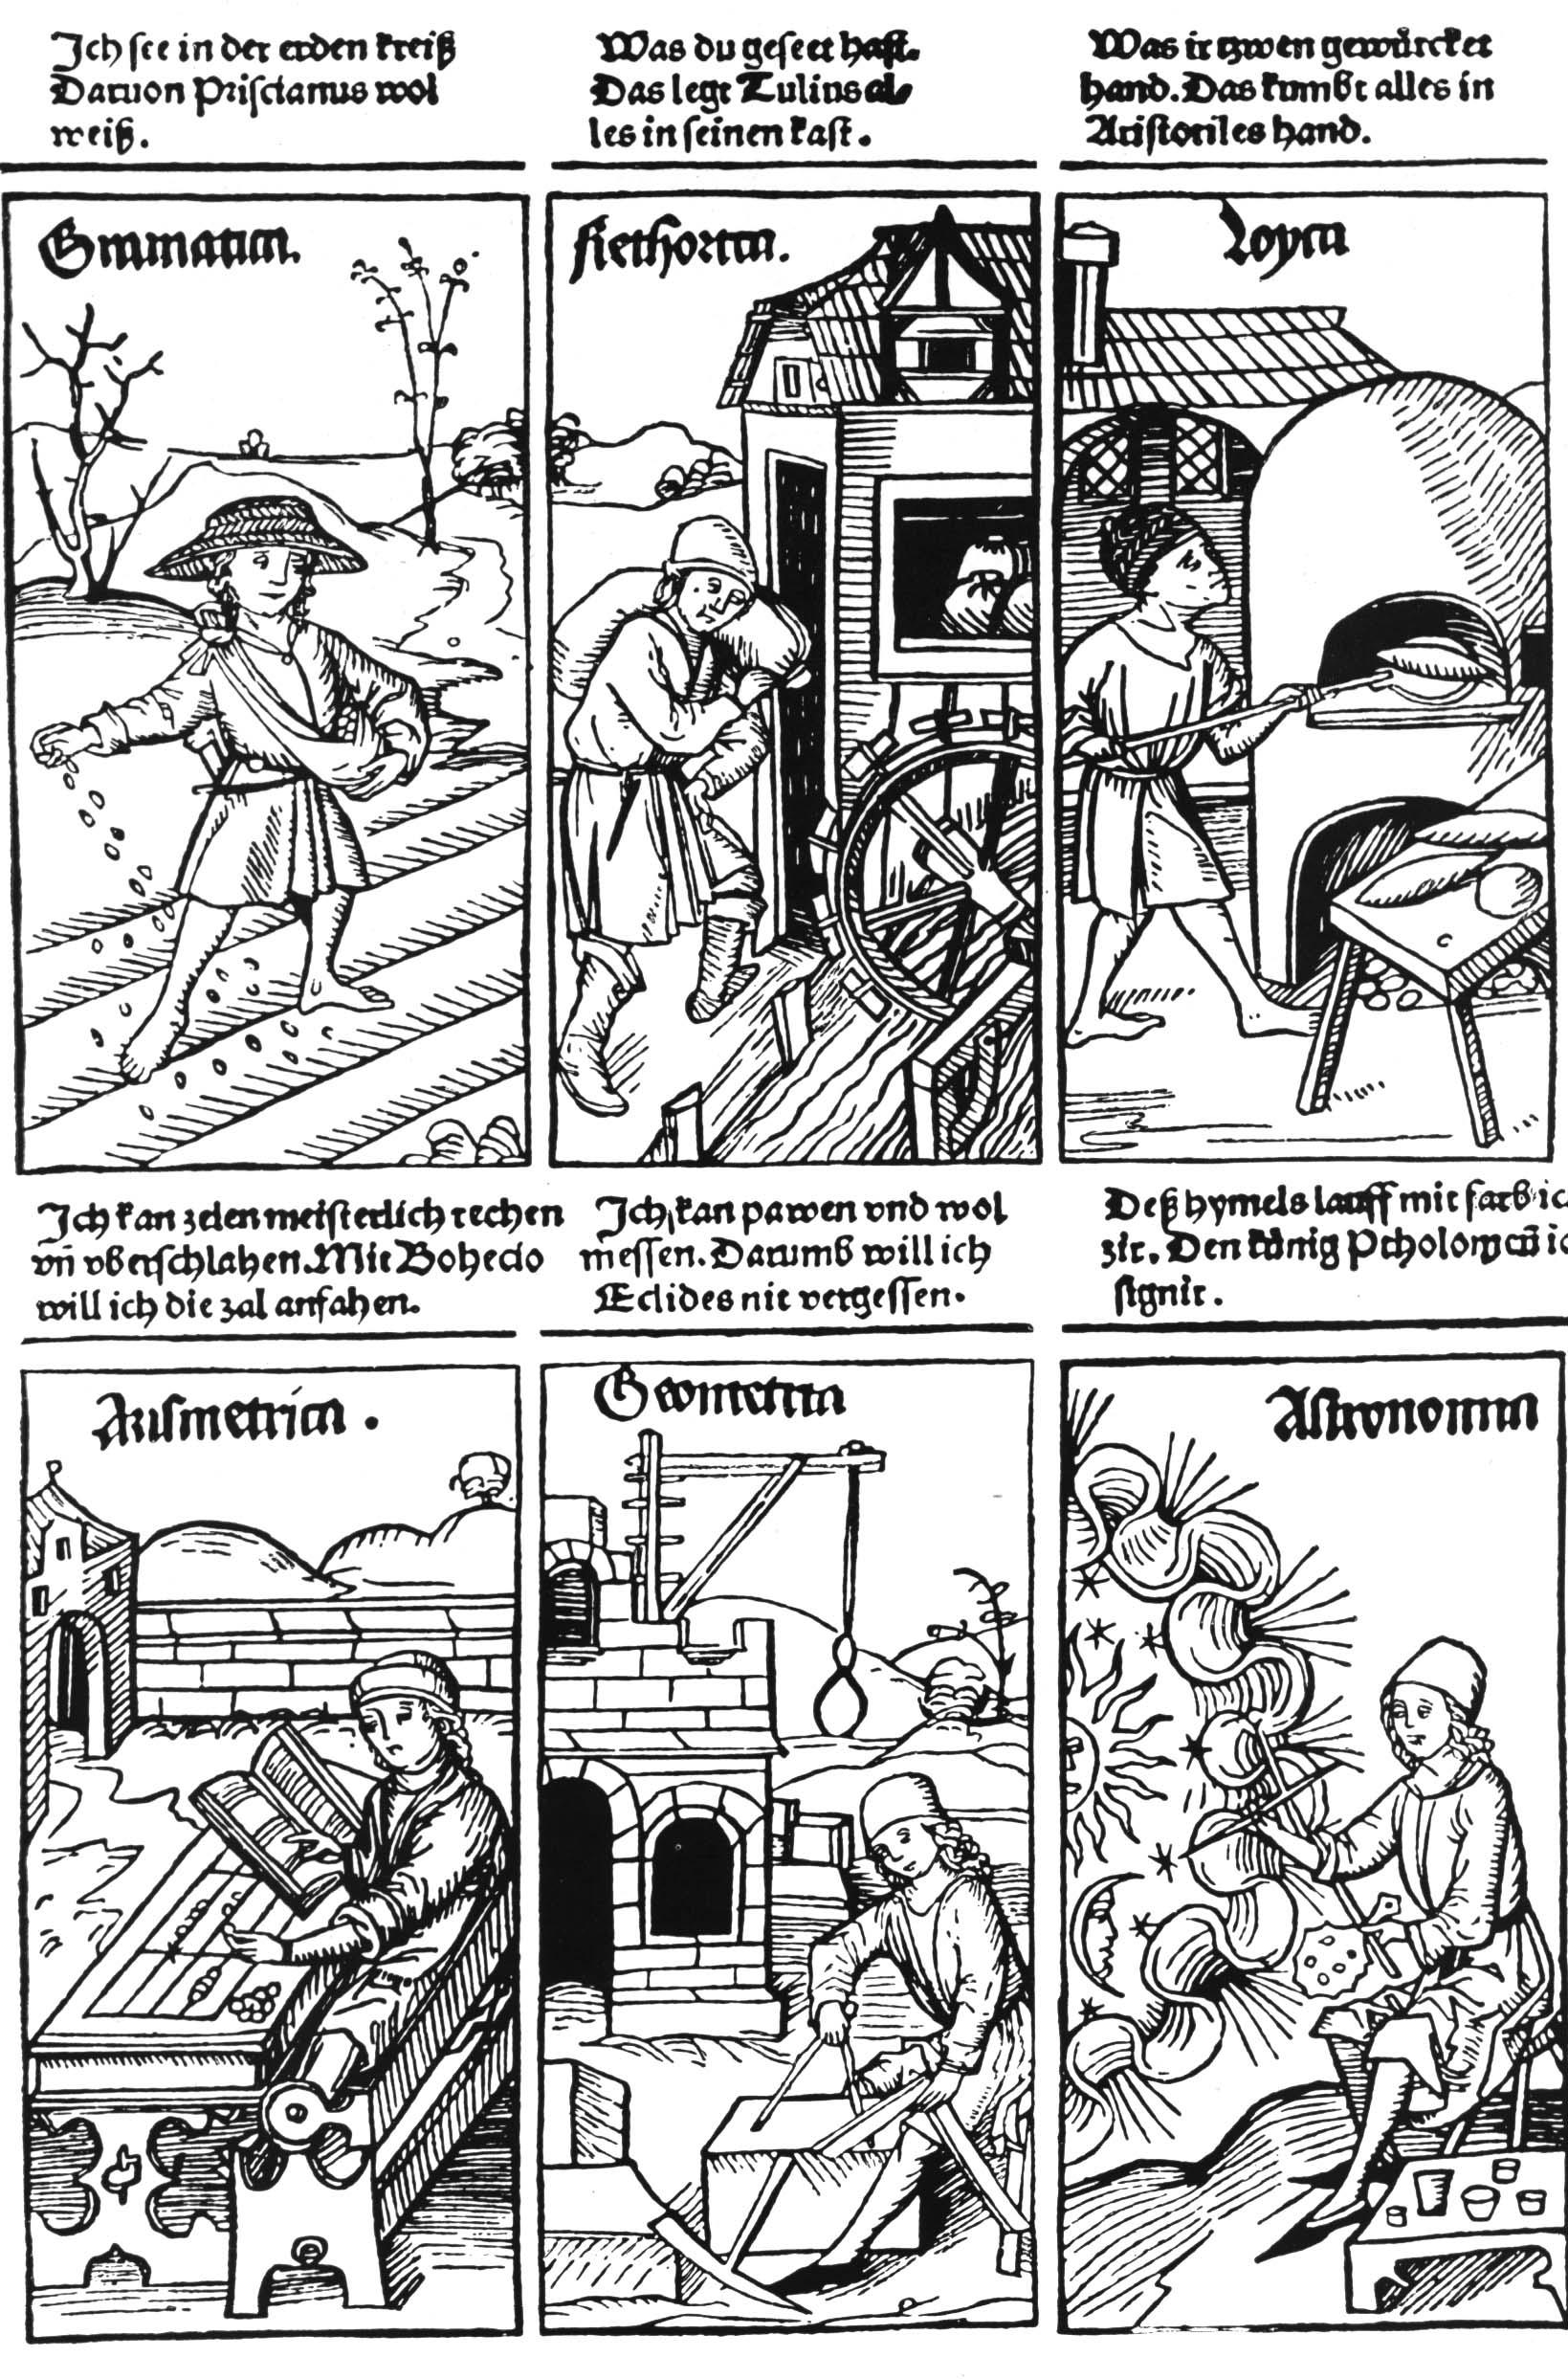 Ich see in der erden kreiß
Daruon Priscianus wol
weiß.
Was du geseet hast.
Das legt Tulius al⸗
les in seinen kast.
Was ir zwen gewürcket
hand. Das kumbt alles in
Aristotiles hand.
Gramatica.
Rethorica.
Loyca
Ich kan zelen meisterlich rechen
vñ vberschlahen. Mit Bohecio
will ich die zal anfahen.
Ich kan pawen vnd wol
messen. Darumb will ich
Eclides nit vergessen.
Deß hymels lauff mit farb ic
zir. Den künig Ptholomeũ ic
signir.
Arismetrica.
Geometria
Astronomia